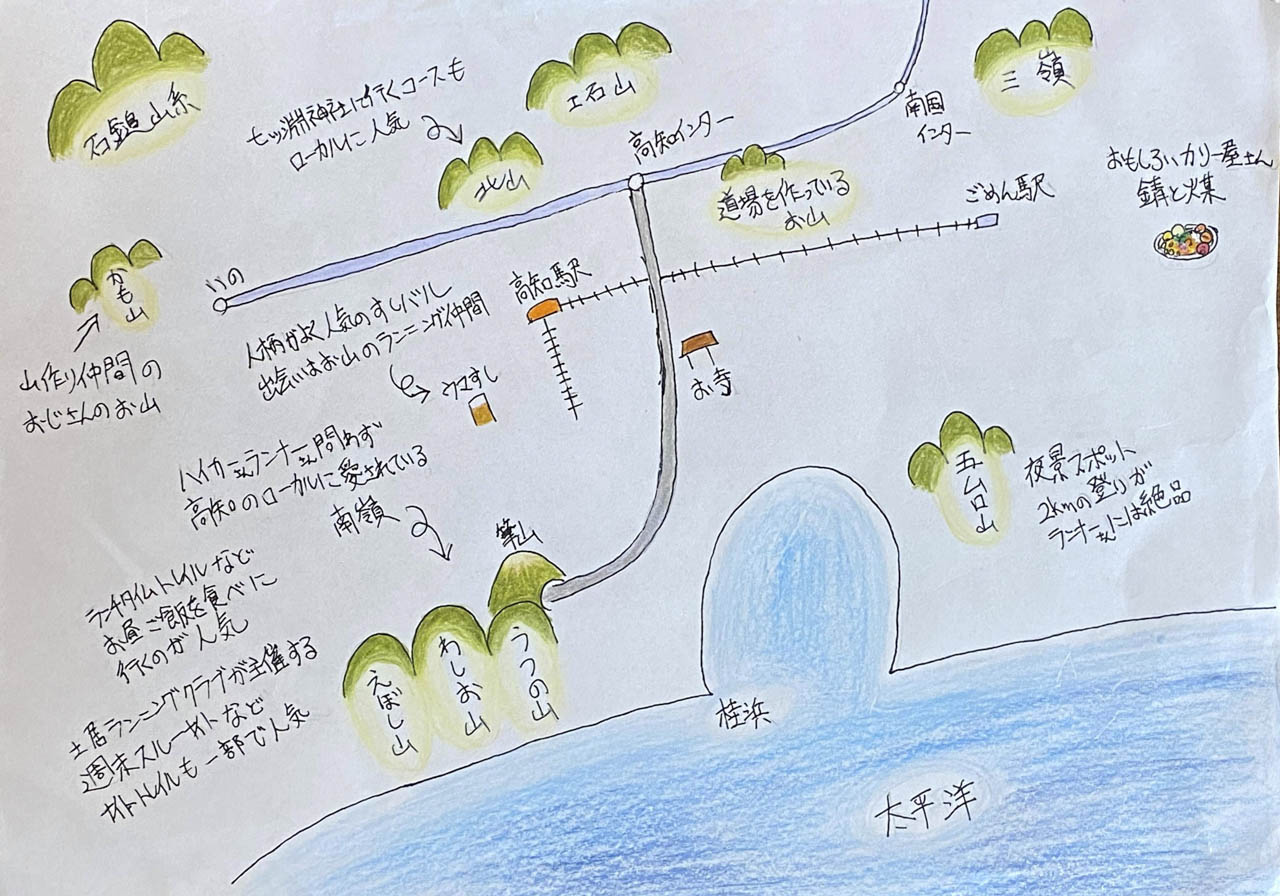 石鎚山系
七ッ淵神社に行くコースも
ローカルに人気
北山
工石山
高知インター
南国
インター
三嶺
道場を作っている
お山
ごめん駅
おもしろいカリー屋さん
錆と煤
いの
かも山
山作り仲間の
おじさんのお山
人柄がよく人気のすしバル
出会いはお山のランニング仲間
高知駅
ウマすし
お寺
ハイカーさんランナーさん問わず
高知のローカルに愛されている
南嶺
筆山
ランチタイムトレイルなど
お昼ご飯を食べに
行くのが人気
土居ランニングクラブが主催する
週末スルーナイトなど
ナイトトレイルも一部で人気
えぼし山
わしお山
うつの山
五台山
夜景スポット
2kmの登りが
ランナーさんには絶品
桂浜
太平洋